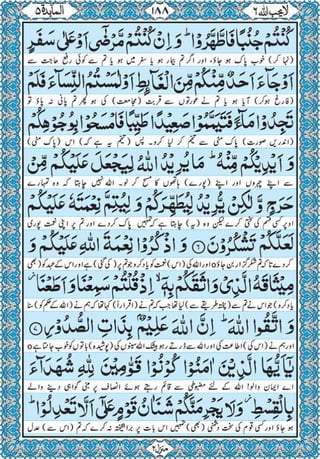 لایحب اللہ ٦ ١٨٨ المائدة ٥
كُنْتُمْ جُنُبًا فَاطَّهَّرُوْا ؕ وَ اِنْ كُنْتُمْ مَّرْضٰۤى اَوْ عَلٰى سَفَرٍ
(نہا کر) خوب پاک ہو جاؤ، اور اگر تم بیمار ہو یا سفر میں ہو یا تم میں سے کوئی رفعِ حاجت سے
اَوْ جَآءَ اَحَدٌ مِّنْكُمْ مِّنَ الْغَآىِٕطِ اَوْ لٰمَسْتُمُ النِّسَآءَ فَلَمْ
(فارغ ہو کر) آیا ہو یا تم نے عورتوں سے قربت (مجامعت) کی ہو پھر تم پانی نہ پاؤ تو
تَجِدُوْا مَآءً فَتَيَمَّمُوْا صَعِيْدًا طَيِّبًا فَامْسَحُوْا بِوُجُوْهِكُمْ
(اندریں صورت) پاک مٹی سے تیمم کر لیا کرو۔ پس (تیمم یہ ہے کہ) اس (پاک مٹی)
وَ اَيْدِيْكُمْ مِّنْهُ ؕ مَا يُرِيْدُ اللّٰهُ لِيَجْعَلَ عَلَيْكُمْ مِّنْ
سے اپنے چہروں اور اپنے (پورے) ہاتھوں کا مسح کر لو۔ اللہ نہیں چاہتا کہ وہ تمہارے
حَرَجٍ وَّ لٰكِنْ يُّرِيْدُ لِيُطَهِّرَكُمْ وَ لِيُتِمَّ نِعْمَتَهٗ عَلَيْكُمْ
اوپر کسی قسم کی سختی کرے لیکن وہ (یہ) چاہتا ہے کہ تمہیں پاک کردے اور تم پر اپنی نعمت پوری
لَعَلَّكُمْ تَشْكُرُوْنَ ۝٦ وَ اذْكُرُوْا نِعْمَةَ اللّٰهِ عَلَيْكُمْ وَ
کر دے تاکہ تم شکر گزار بن جاؤ ۝ اور اللہ کی (اس) نعمت کو یاد کرو جو تم پر (کی گئی) ہے اور اس کے عہد کو (بھی
مِيْثَاقَهُ الَّذِيْ وَاثَقَكُمْ بِهٖۤ ۙ اِذْ قُلْتُمْ سَمِعْنَا وَ اَطَعْنَا ؗ
یاد کرو) جو اس نے تم سے (پختہ طریقے سے) لیا تھا جب کہ تم نے (اقراراً) کہا تھا کہ ہم نے (اللہ کے حکم کو) سنا
وَ اتَّقُوا اللّٰهَ ؕ اِنَّ اللّٰهَ عَلِيْمٌۢ بِذَاتِ الصُّدُوْرِ ۝٧
اور ہم نے (اس کی) اطاعت کی اور اللہ سے ڈرتے رہو بیشک اللہ سینوں کی (پوشیدہ) باتوں کو خوب جانتا ہے ۝
يٰۤاَيُّهَا الَّذِيْنَ اٰمَنُوْا كُوْنُوْا قَوّٰمِيْنَ لِلّٰهِ شُهَدَآءَ
اے ایمان والو! اللہ کے لئے مضبوطی سے قائم رہتے ہوئے انصاف پر مبنی گواہی دینے والے
بِالْقِسْطِ ؗ وَ لَا يَجْرِمَنَّكُمْ شَنَاٰنُ قَوْمٍ عَلٰۤى اَلَّا تَعْدِلُوْا ؕ
ہو جاؤ اور کسی قوم کی سخت دشمنی (بھی) تمہیں اس بات پر برانگیختہ نہ کرے کہ تم (اس سے) عدل
منزل ٢